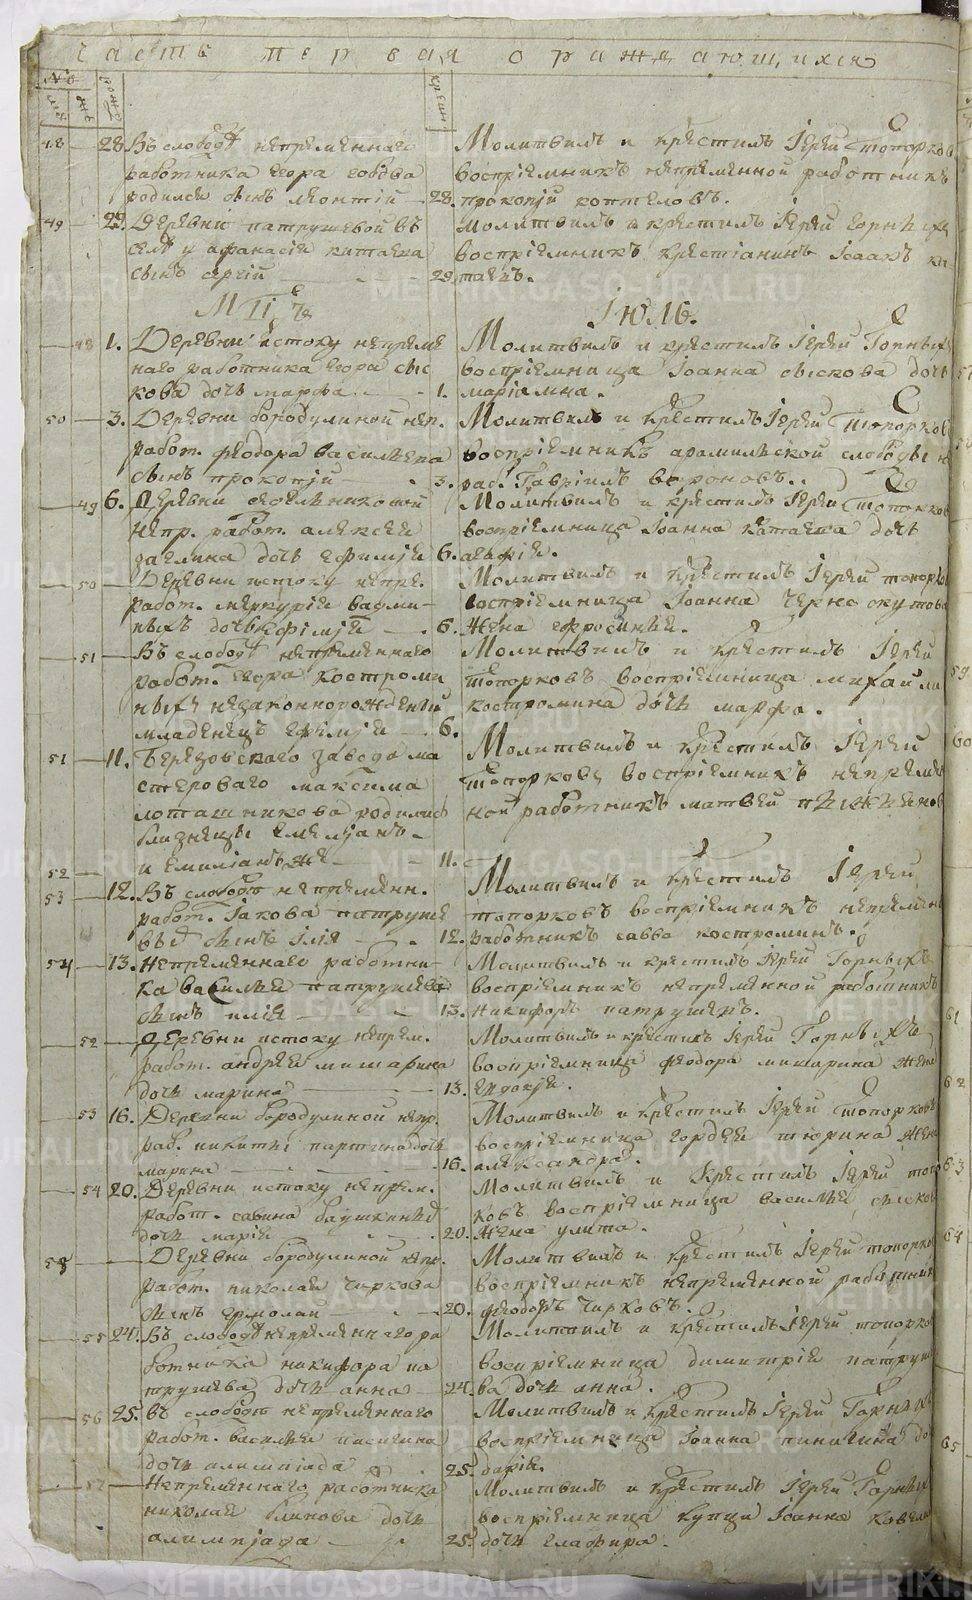 часть первая о раждающихся
№
муж
жен
рожд
крещ
48 28. Въ слободѣ непременнаго
работника Егора
родился сынъ леонтій 28.
Молитвилъ и крестилъ Іерей Топорков
воспріемникъ непременной работникъ
прокопій котеловъ.
49 29. Деревни патрушевой въ
селѣ у афанасія китаева
сынъ сергій 29.
Молитвилъ и крестилъ Іерей Горных
воспріемникъ крестіанинъ Ісаакъ ки
таевъ.
Мцъ Іюль.
48 1. Деревни истоку непреме
наго работника Егора сыс
кова дочь марфа 1.
Молитвилъ и крестилъ Іерей Горныхъ
воспріемница Іоанна сыскова дочь
маріамна.
50 3. Деревни бородулиной неп.
работ. Феодора васильева
сынъ прокопій 3.
Молитвилъ и крестилъ Іерей Топорков
воспріемникъ арамильской слободы н
раб. Гавріилъ вороновъ.
49 6. Деревни
непр. работ. алексеи
дочь ефимія 6.
Молитвилъ и крестилъ Іерей Топорков
воспріемница Іоанна катаева дочь
агафія.
50 Деревни истоку непре.
работ. меркурія
ныхъ дочь ефимія 6.
Молитвилъ и крестилъ Іерей топорко
воспріемница Іоанна черноскутова
жена ефросинія.
51 Въ слободѣ непременнаго
работ. Егора костроми
ныхъ незаконнорожденый
младенецъ ефимія 6.
Молитвилъ и крестилъ Іерей
Топорковъ воспріемница михаила
костромина дочь марфа.
51 11. Березовскаго завода ма
стероваго максима
лоташникова родились
близнецы емеліанъ
52 и емиліанъ же 11.
Молитвилъ и крестилъ Іерей
Топорковъ воспріемникъ непреме
ной работникъ матвей
53 12. Въ слободѣ непременн.
работ. Іакова патруше
ва сынъ Ілія 12.
Молитвилъ и крестилъ Іерей
топорковъ воспріемникъ непремен
работникъ савва костроминъ.
54 13. Непременнаго работни
ка василья патрушева
сынъ илія 13.
Молитвилъ и крестилъ Іерей Горныхъ
воспріемникъ непременной работникъ
никифоръ патрушевъ.
52 Деревни истоку непрем.
работ. андреи мишарина
дочь марина 13.
Молитвилъ и крестилъ Іерей Горныхъ
воспріемница феодора мишарина жена
евдокія.
53 16. Деревни бородулиной непр.
раб. никиты паргина дочь
марина 16.
Молитвилъ и крестилъ Іерей топорковъ
воспріемница гордеи тюрина жена
александра.
54 20. Деревни истоку непрем.
работ. савина
дочь марія 20.
Молитвилъ и крестилъ Іерей топо
ковъ воспріемница василья сысков
жена улита.
55 Деревни бородулиной непр.
работ. николаи чиркова
сынъ ермолаи 20.
Молитвилъ и крестилъ Іерей топорко
воспріемникъ непременной работник
феодоръ чирковъ.
55 24. Въ слободѣ непременнаго ра
ботника никифора па
трушева дочь анна 24.
Молитвилъ и крестилъ Іерей топорко
воспріемница димитрія патруше
ва дочь анна.
56 25. въ слободѣ непременнаго
работ. василья пинигина
дочь алимпіада 25.
Молитвилъ и крестилъ Іерей Горных
воспріемница Іоанна пинигина до
дарія.
57 Непременнаго работника
николаи блинова дочь
алимпіада 25.
Молитвилъ и крестилъ Іерей Горных
воспріемница купца Іоанна
дочь Глафира.
METRIKI.GASO-URAL.RU